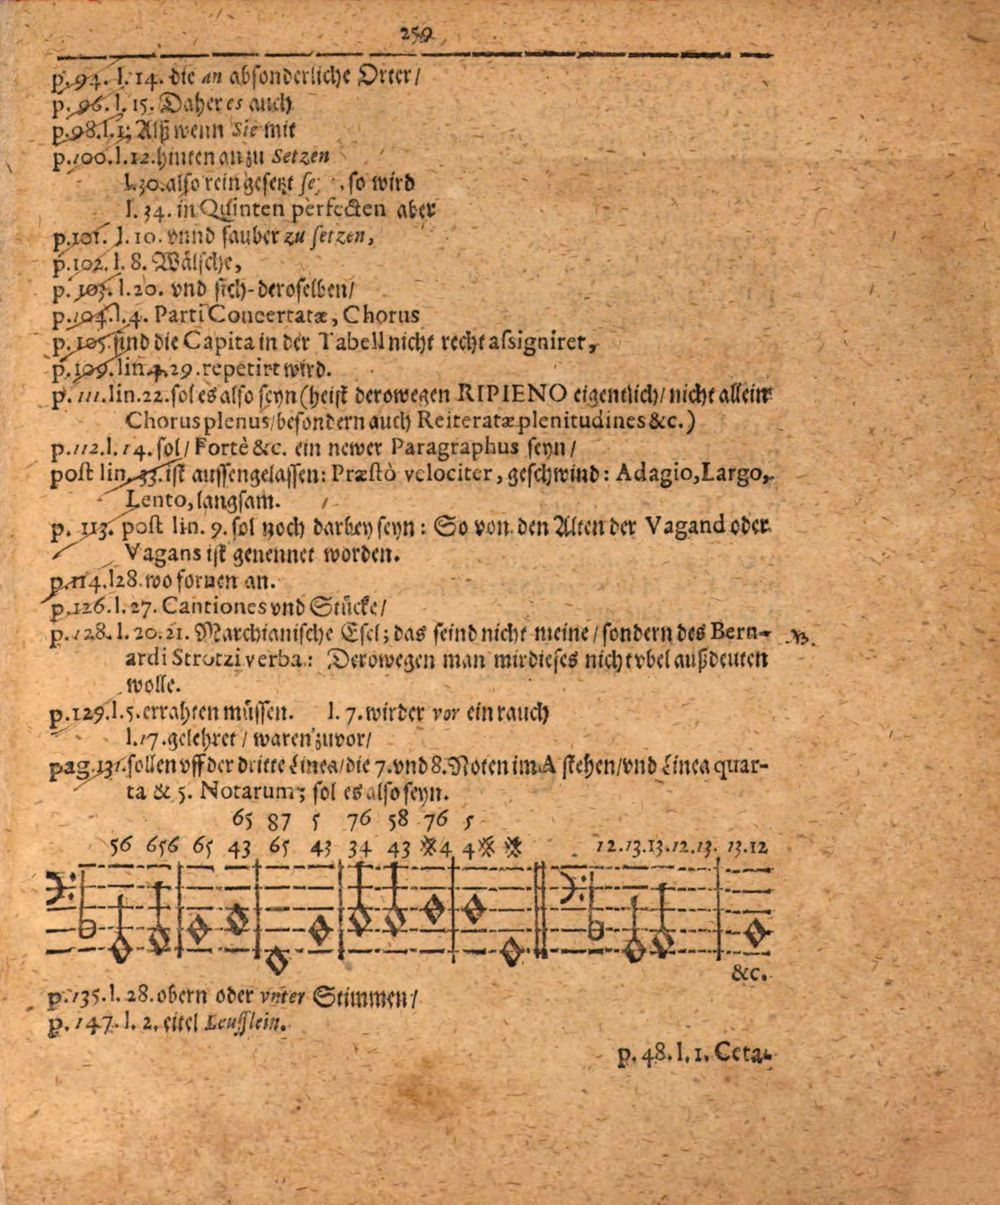 259
p. 94. l. 14. die an absonderliche Örter/
p. 96. l. 15. Daher es auch
p. 98. l. 1; Alß wenn Sie mit
p. 100. l. 12. hinten an zu Setzen
l. 30. also rein gesetzt , so wird
l. 34. in Quinten perfecten aber
p. 101. l. 10. vnnd sauber zu setzen,
p. 102. l. 8. Wälsche,
p. 103. l. 20. vnd sich-deroselben/
p. 104. l. 4. Parti Concertatæ, Chorus
p. 105. sind die Capita in der Tabell nicht recht assigniret,
p. 109. lin. 4. 29. repetirt wird.
p. 111. lin. 22. sol es also seyn (heist derowegen RIPIENO eigentlich/ nicht allein
Chorus plenus/ besondern auch Reiteratæ plenitudines &c.)
p. 112. l. 14. sol/ Fortè &c. ein newer Paragraphus seyn/
post lin. 33. ist aussengelassen: Præstò velociter, geschwind: Adagio, Largo,
Lento, langsam.
p. 113. post lin. 9. sol noch darbey seyn: So von den Alten der Vagand oder
Vagans ist genennet worden.
p. 114. l28. wo fornen an.
p. 126. l. 27. Cantiones vnd Stücke/
p. 128. l. 20. 21. Marchianische Esel; das seind nicht meine/ sondern des Bern-
ardi Strotzi verba: Derowegen man mir dieses nicht vbel außdeuten
wolle.
p. 129. l. 5. errahten müssen. l. 7. wird er vor ein rauch
l. 17. gelehret/ waren zuvor/
pag. 131. sollen vff der dritte Linea/ die 7. vnd 8. Noten im A stehen/ vnd Linea quar-
ta & 5. Notarum; sol es also seyn.
65 87 5 76 58 76 5
56 656 65 43 65 43 34 43 ※4 4※ ※ 12. 13. 13. 12. 13. 13. 12
&c.
p. 135. l. 28. obern oder vnter Stimmen/
p. 147. l. 2. eitel Leufflein.
p. 48. l. 1. Ceta-